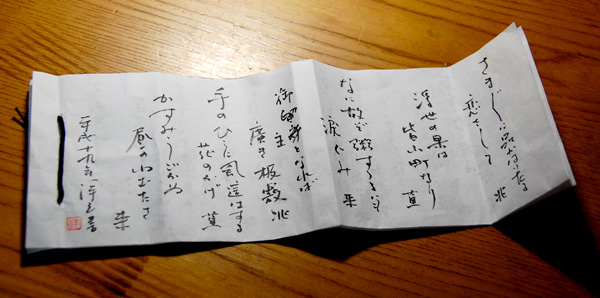 さま〲に品かはりたる
恋をして 兆
浮世の果は
皆小町なり 蕉
なに故ぞ粥すゝるにも
涙ぐみ 来
御留守となれば
主
廣き板敷 兆
手のひらに虱這はする
花のかげ 蕉
かすみうごかぬ
昼のねむたさ 来
平成十九年 書